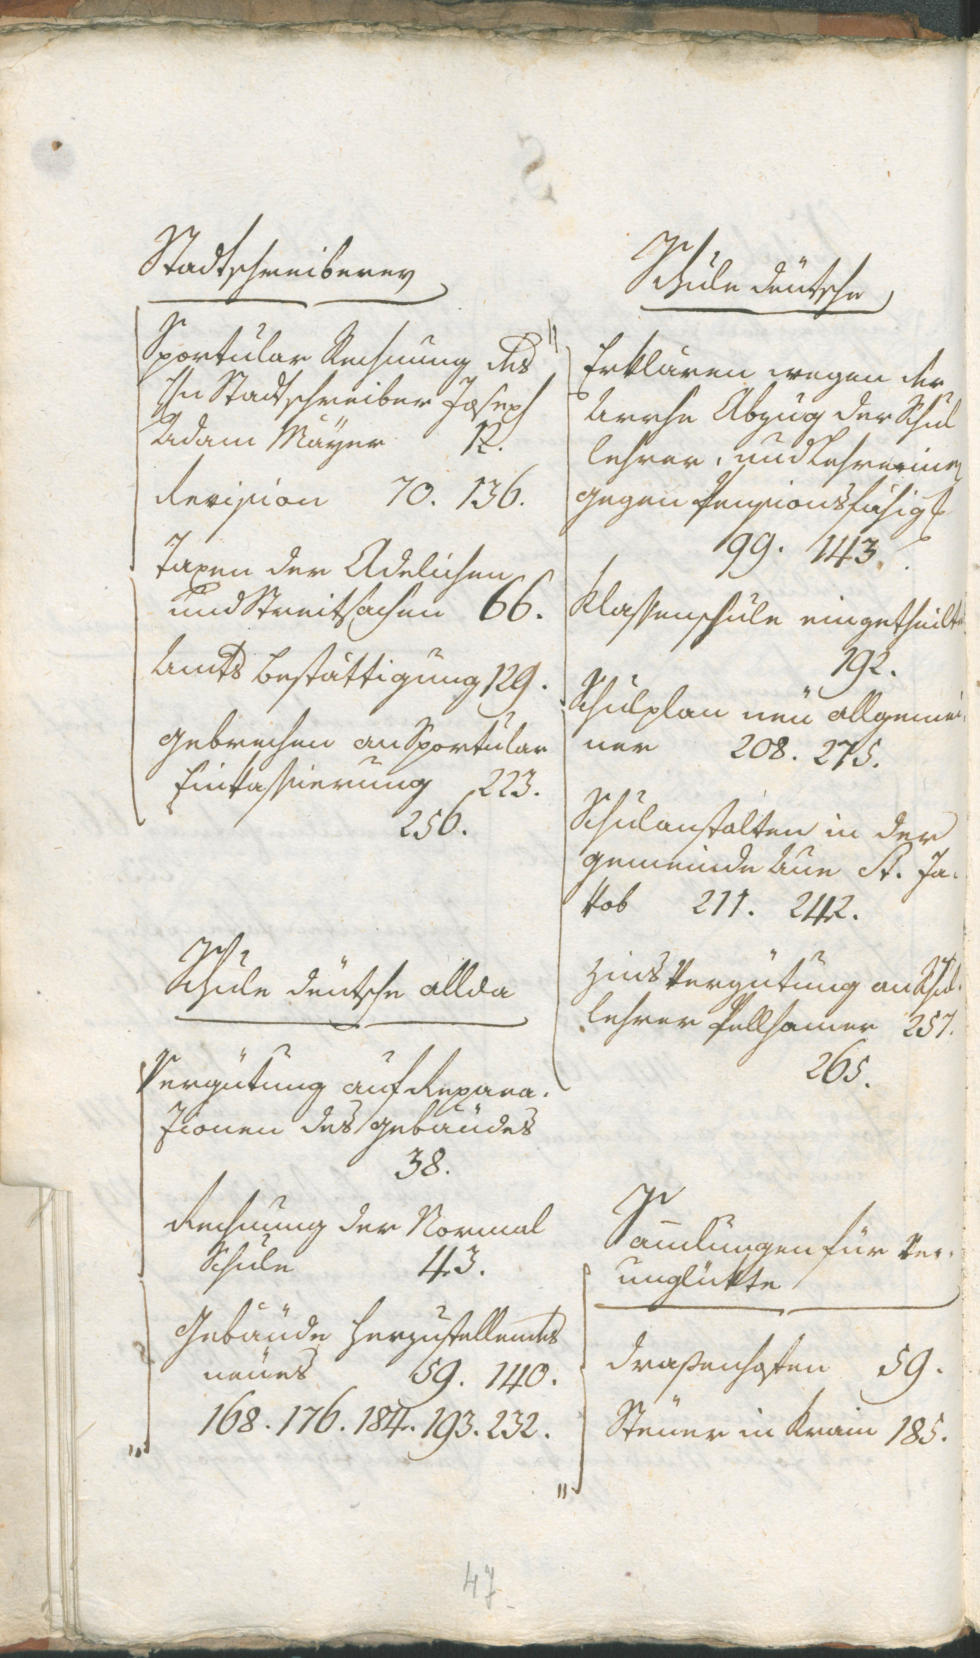 Stadtschreiberey
Sportular Rechnung des
Hn Stadtschreiber Joseph
Adam Mayer 12.
Revision 70. 136.
Taxen der Adelichen
und Streitsachen 66.
Amts bestättigung 129.
gebrechen an Sportular
Einkassierung 223.
256.
Schule deutsche allda
Vergütung auf Repara-
zionen des gebäudes
38.
Rechnung der Normal
Schule 43.
Gebäude herzustellendes
neues 59. 140.
168. 176. 184. 193. 232.
Schule deutsche
Erklären wegen der
Abzug der Schul
lehrer, und Lehrerinen
gegen Pensionsfähigk
99. 143.
Klassenschule eingetheilte
192.
Schulplan neu allgemei-
ner 208. 275.
Schulanstalten in der
gemeinde St. Ja-
kob 211. 242.
Zins Vergütung an Schul-
lehrer Pellhamer 257.
265.
Samlungen für Ver-
unglükte
59.
Steuer in Krain 185.
47